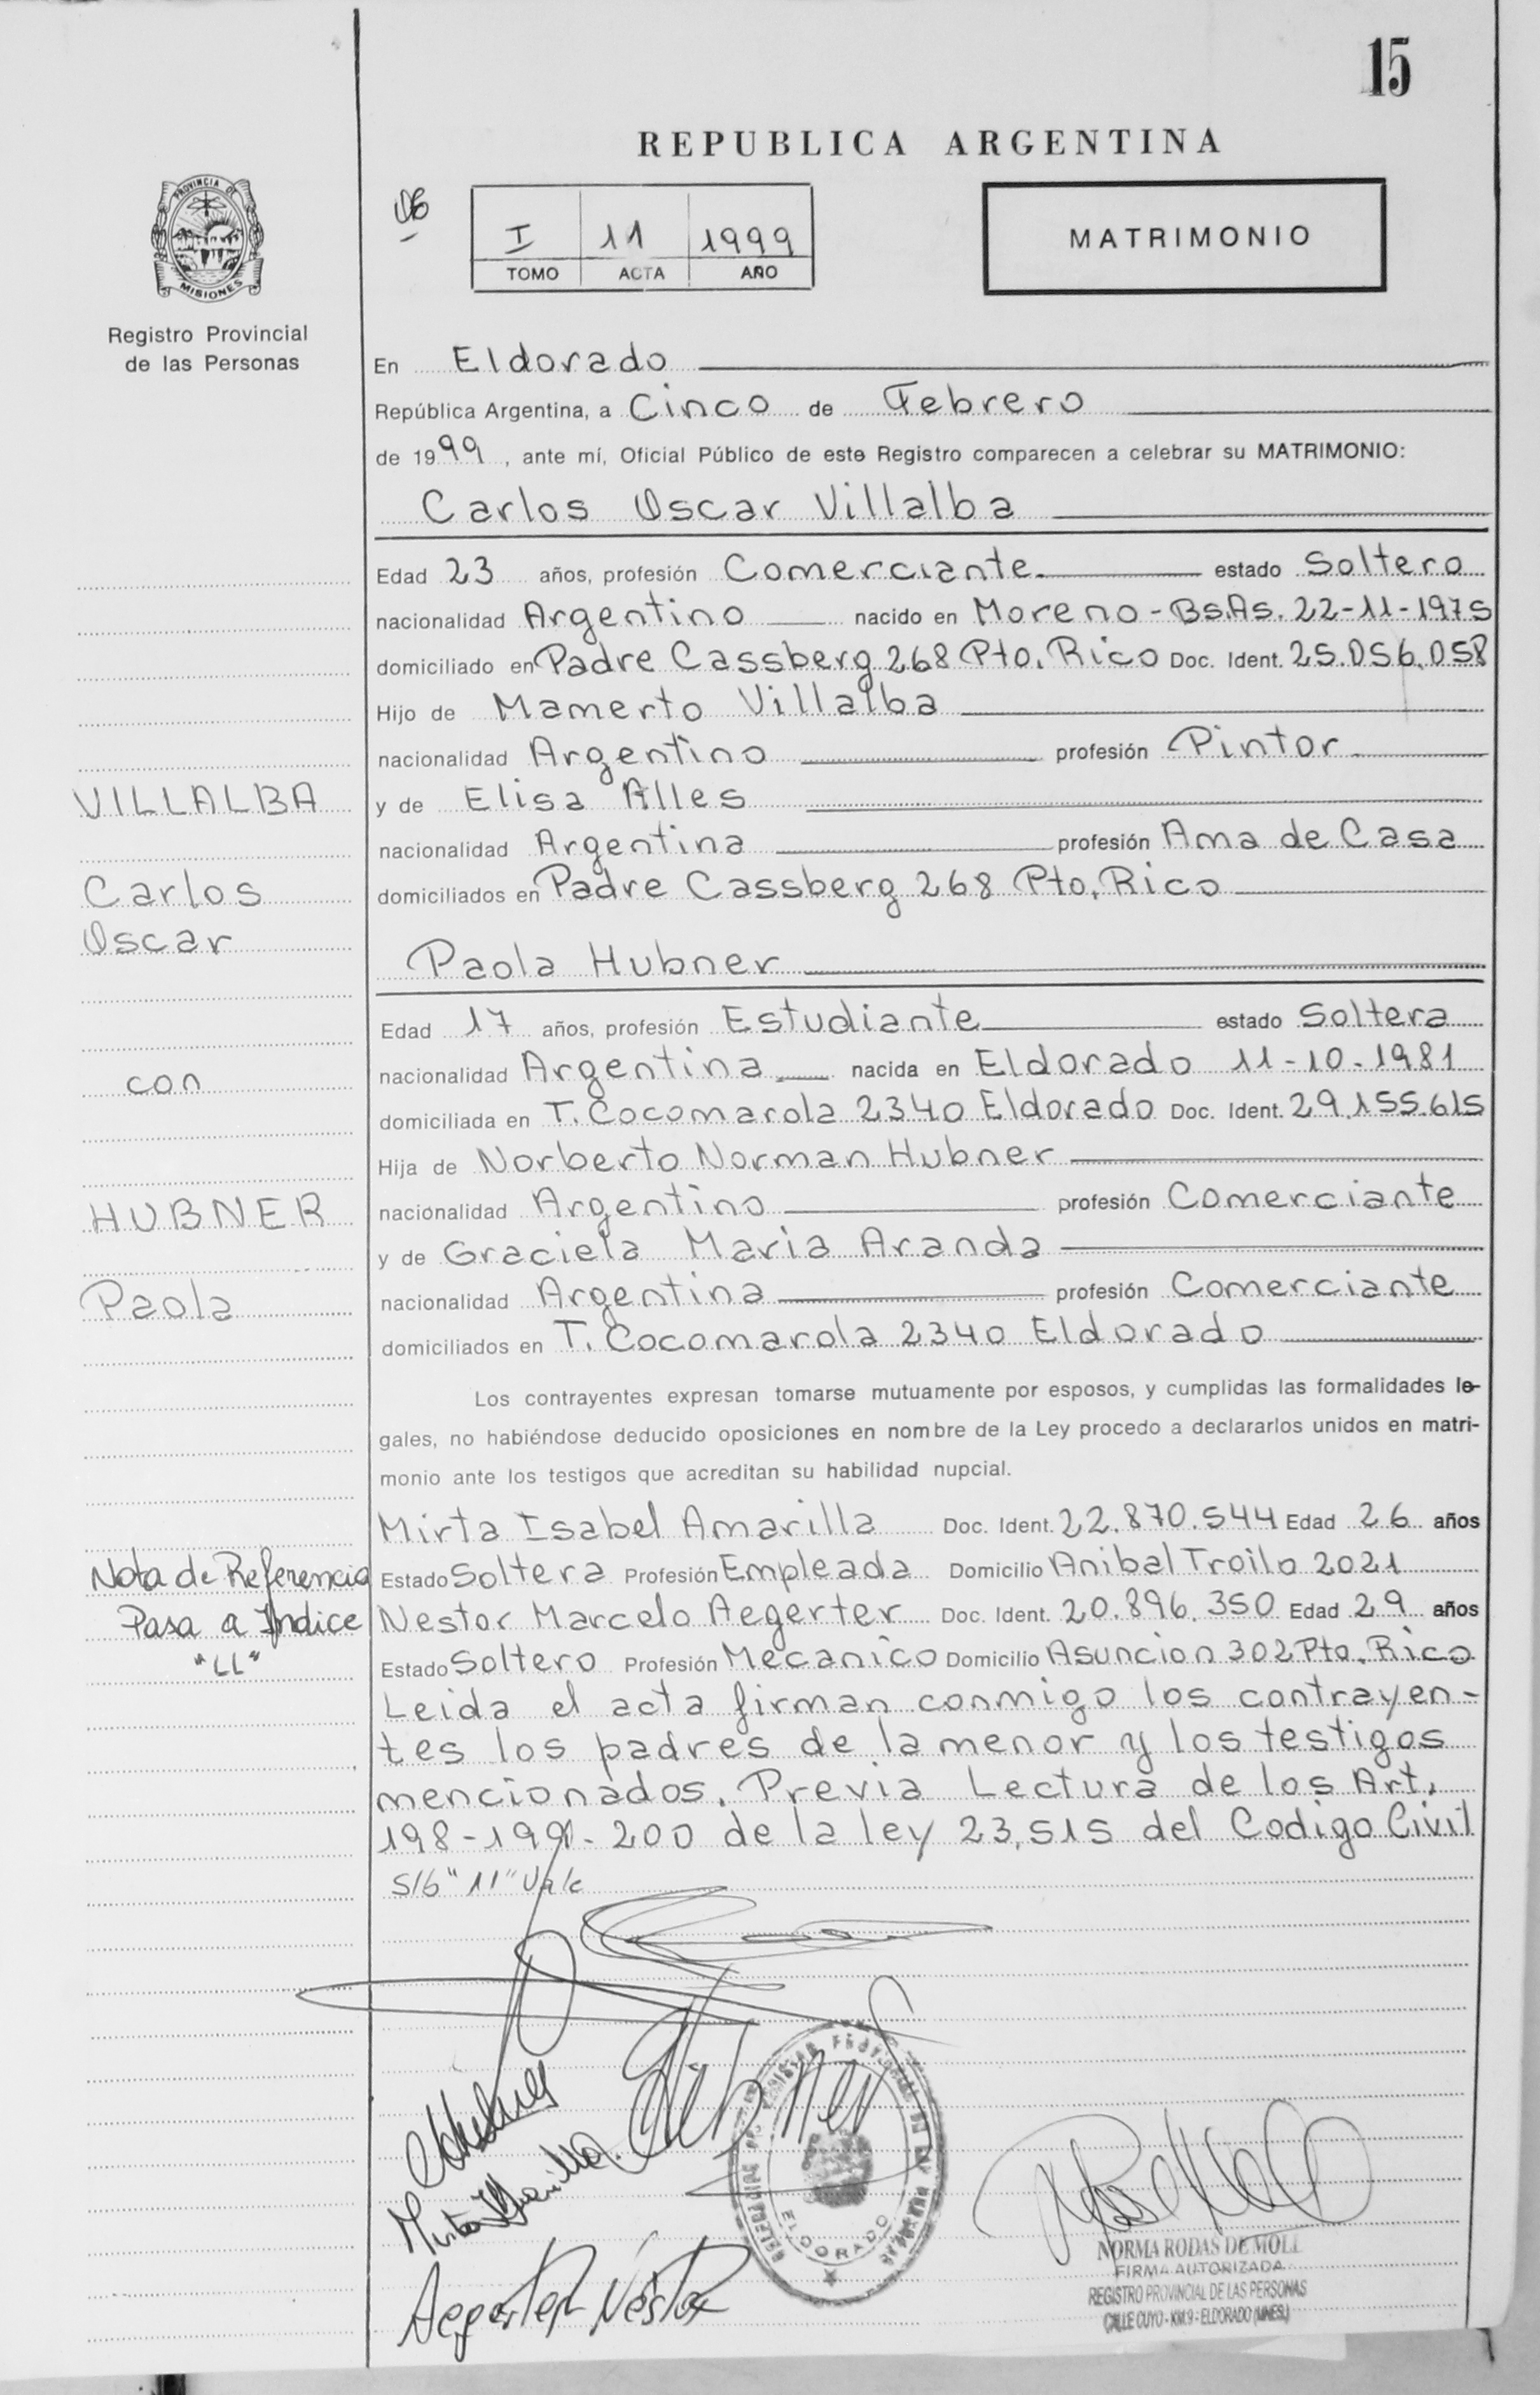 15
REPUBLICA ARGENTINA
PROVINCIA DE
MISIONES
Registro Provincial
de las Personas
I 11 1999
TOMO ACTA AÑO
MATRIMONIO
En Eldorado
República Argentina, a Cinco de Febrero
de 1999, ante mí, Oficial Público de este Registro comparecen a celebrar su MATRIMONIO:
Carlos Oscar Villalba
Edad 23 años, profesión Comerciante estado Soltero
nacionalidad Argentino nacido en Moreno - Bs.As. 22-11-1975
domiciliado en Padre Cassberg 268 Pto. Rico Doc. Ident. 25.056.058
Hijo de Mamerto Villalba
nacionalidad Argentino profesión Pintor
VILLALBA
y de Elisa Alles
nacionalidad Argentina profesión Ama de Casa
Carlos
domiciliados en Padre Cassberg 268 Pto. Rico
Oscar
Paola Hubner
Edad 17 años, profesión Estudiante estado Soltera
con
nacionalidad Argentina nacida en Eldorado 11-10-1981
domiciliada en T. Cocomarola 2340 Eldorado Doc. Ident. 29.155.615
Hija de Norberto Norman Hubner
HUBNER
nacionalidad Argentino profesión Comerciante
y de Graciela Maria Aranda
Paola
nacionalidad Argentina profesión Comerciante
domiciliados en T. Cocomarola 2340 Eldorado
Los contrayentes expresan tomarse mutuamente por esposos, y cumplidas las formalidades le-
gales, no habiéndose deducido oposiciones en nombre de la Ley procedo a declararlos unidos en matri-
monio ante los testigos que acreditan su habilidad nupcial.
Mirta Isabel Amarilla Doc. Ident. 22.870.544 Edad 26 años
Nota de Referencia
Estado Soltera Profesión Empleada Domicilio Anibal Troilo 2021
Pasa a Indice
Nestor Marcelo Aegerter Doc. Ident. 20.896.350 Edad 29 años
"LL"
Estado Soltero Profesión Mecanico Domicilio Asuncion 302 Pto. Rico
Leida el acta firman conmigo los contrayen-
tes los padres de la menor y los testigos
mencionados. Previa Lectura de los Art.
198-199-200 de la ley 23.515 del Codigo Civil
S/b "11" Vale
ELDORADO
Aegerter Néstor
NORMA RODAS DE MOLL
FIRMA AUTORIZADA
REGISTRO PROVINCIAL DE LAS PERSONAS
CALLE CUYO - KM.9 - ELDORADO (MNES.)